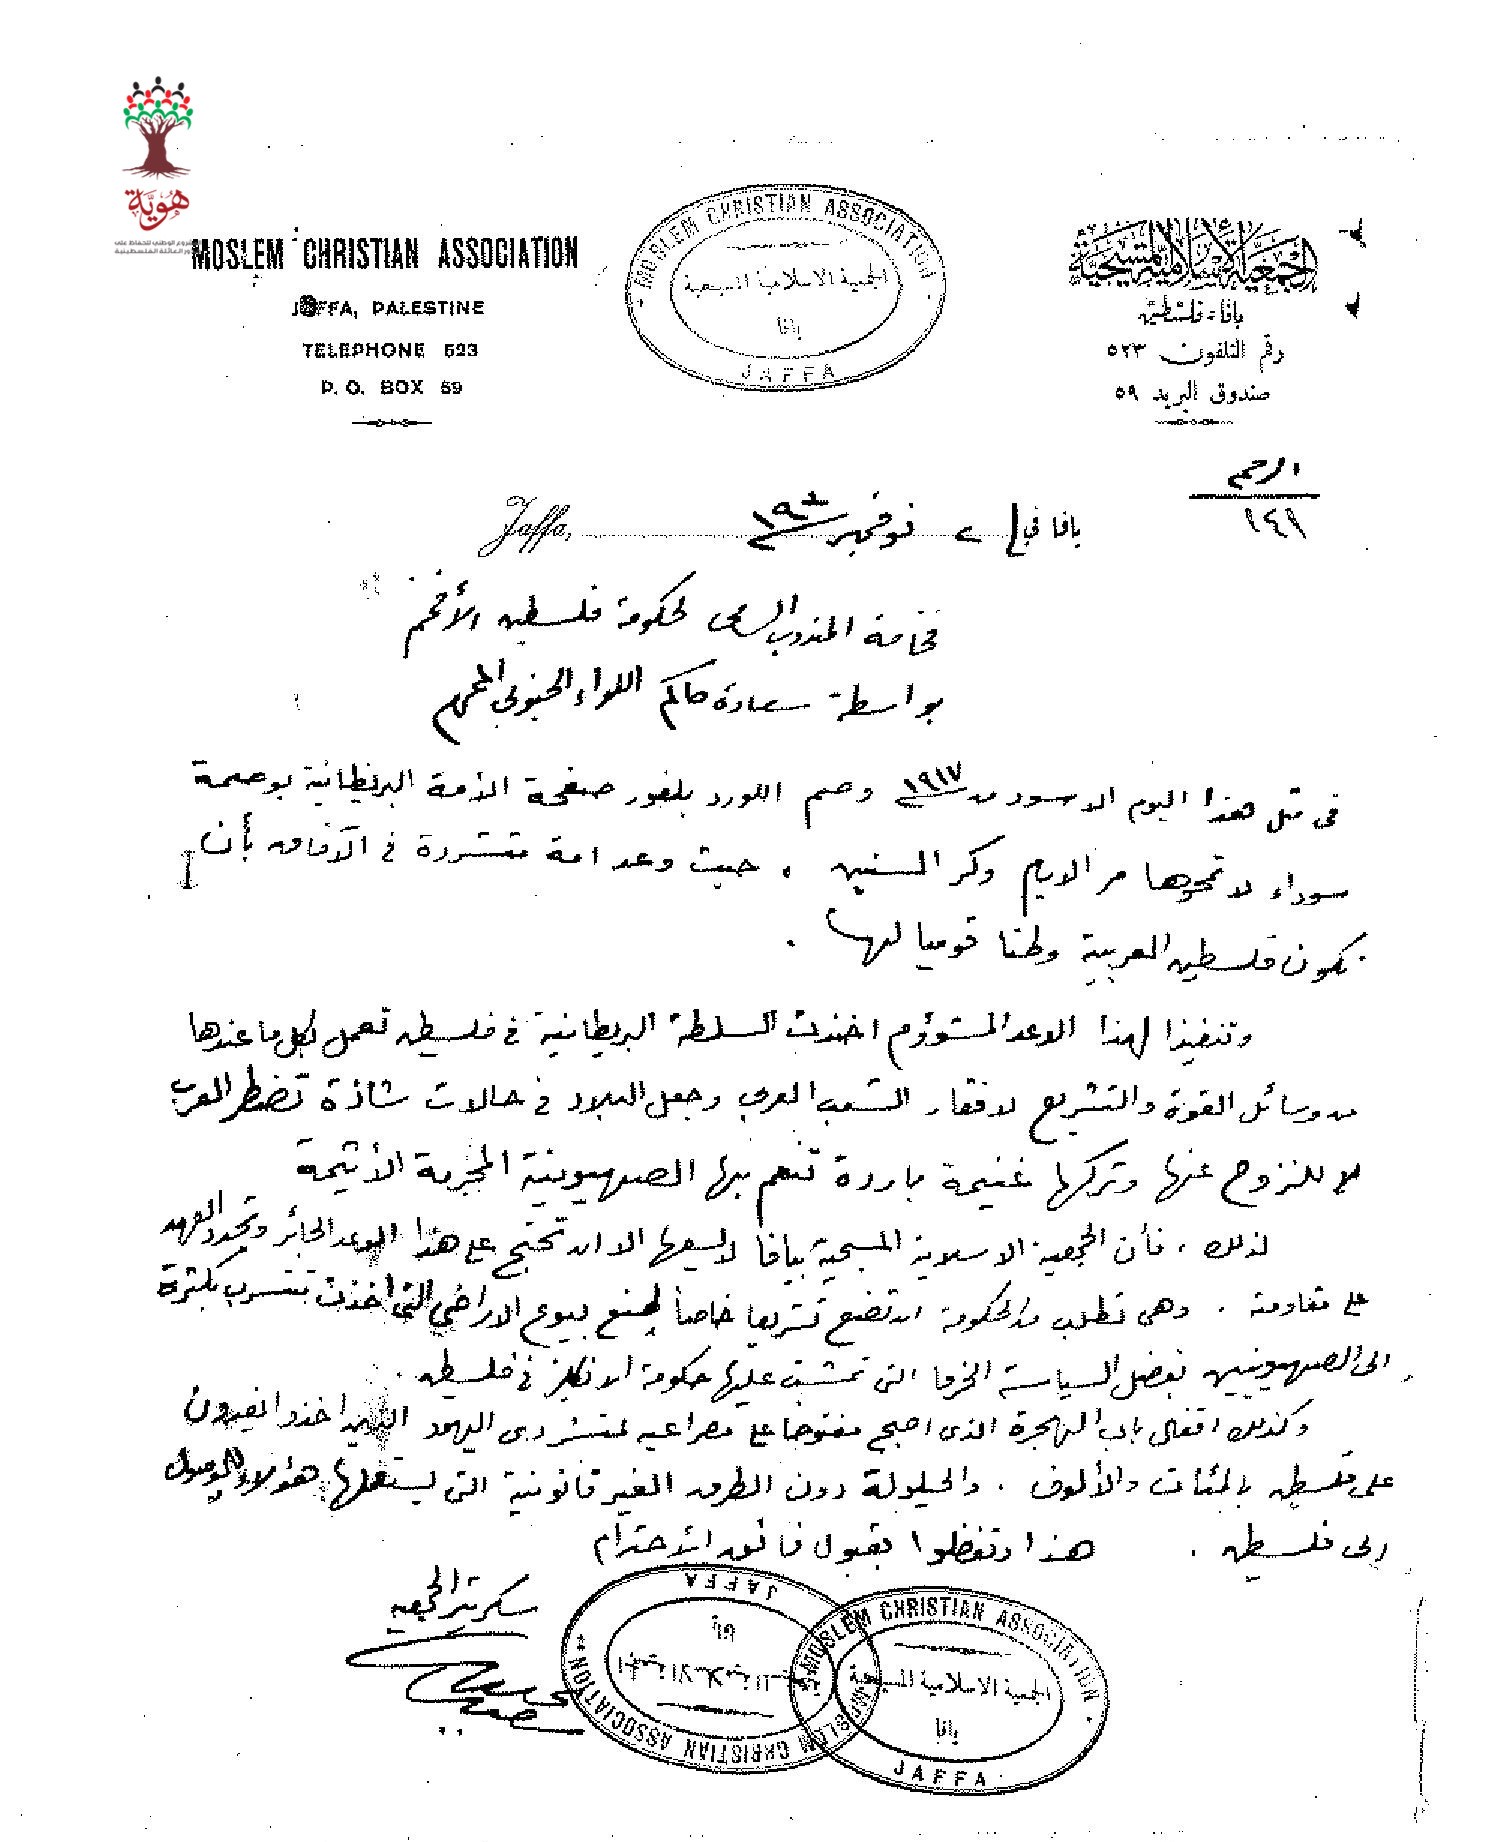 هوية
MOSLEM CHRISTIAN ASSOCIATION
JAFFA, PALESTINE
TELEPHONE 523
P. O. BOX 59
MOSLEM CHRISTIAN ASSOCIATION
الجمعية الاسلامية المسيحية
يافا
JAFFA
الجمعية الاسلامية المسيحية
يافا، فلسطين
رقم التلفون ٥٢٣
صندوق البريد ٥٩
يافا في ٢ نوفمبر
Jaffa,
فخامة المندوب السامي لحكومة فلسطين الأفخم
بواسطة سعادة حاكم اللواء الجنوبي
في مثل هذا اليوم الاسود من سنة ١٩١٧ وصم اللورد بلفور صفحة الأمة البريطانية بوصمة
سوداء لا تمحوها مر الايام وكر السنين . حيث وعد امة متشردة في الآفاق بأن
تكون فلسطين العربية وطنا قوميا لها .
وتنفيذا لهذا الوعد المشؤوم اخذت السلطة البريطانية في فلسطين تعمل بكل ما عندها
من وسائل القوة والتشريع لافقار الشعب العربي وجعل البلاد في حالات شاذة تضطر العرب
للنزوح عنها وتركها غنيمة باردة تنعم بها الصهيونية المجرمة الأثيمة
لذلك ، فأن الجمعية الاسلامية المسيحية بيافا لا يسعها الا ان تحتج على هذا الوعد الجائر وتجدد العهد
على مقاومته . وهي تطلب من الحكومة ان تضع تشريعا خاصا لمنع بيوع الاراضي التي اخذت تتسرب بكثرة
الى الصهيونيين بفضل السياسة الخرقا التي تمشت عليها حكومة الانكليز في فلسطين .
وكذلك اقفال باب الهجرة الذي اصبح مفتوحا على مصراعيه لمتشردي اليهود الذين اخذوا يفدون
على فلسطين بالمئات والألوف . والحيلولة دون الطرق الغير قانونية التي يستعملها هؤلاء للوصول
الى فلسطين . هذا وتفضلوا بقبول فائق الاحترام
سكرتير الجمعية
MOSLEM CHRISTIAN ASSOCIATION
يافا
JAFFA
MOSLEM CHRISTIAN ASSOCIATION
الجمعية الاسلامية المسيحية
يافا
JAFFA